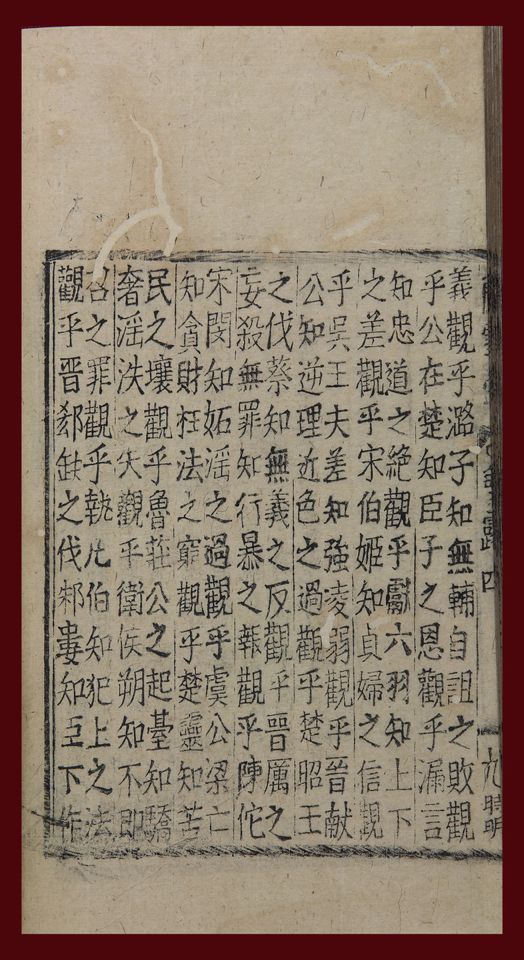 四
九
時明
義觀乎潞子知無輔自詛之敗觀
乎公在楚知臣子之恩觀乎漏言
知忠道之絶觀乎獻六羽知上下
之差觀乎宋伯姬知貞婦之信觀
乎吳王夫差知強凌弱觀乎晉献
公知逆理近色之過觀乎楚昭王
之伐蔡知無義之反觀乎晉厲之
妄殺無罪知行暴之報觀乎陳佗
宋閔知妬淫之過觀乎虞公梁亡
知貪財枉法之窮觀乎楚靈知苦
民之壤觀乎魯莊公之起臺知驕
奢淫泆之失觀乎衛侯朔知不即
召之罪觀乎執凡伯知犯上之法
觀乎晉郄缺之伐邾婁知臣下作